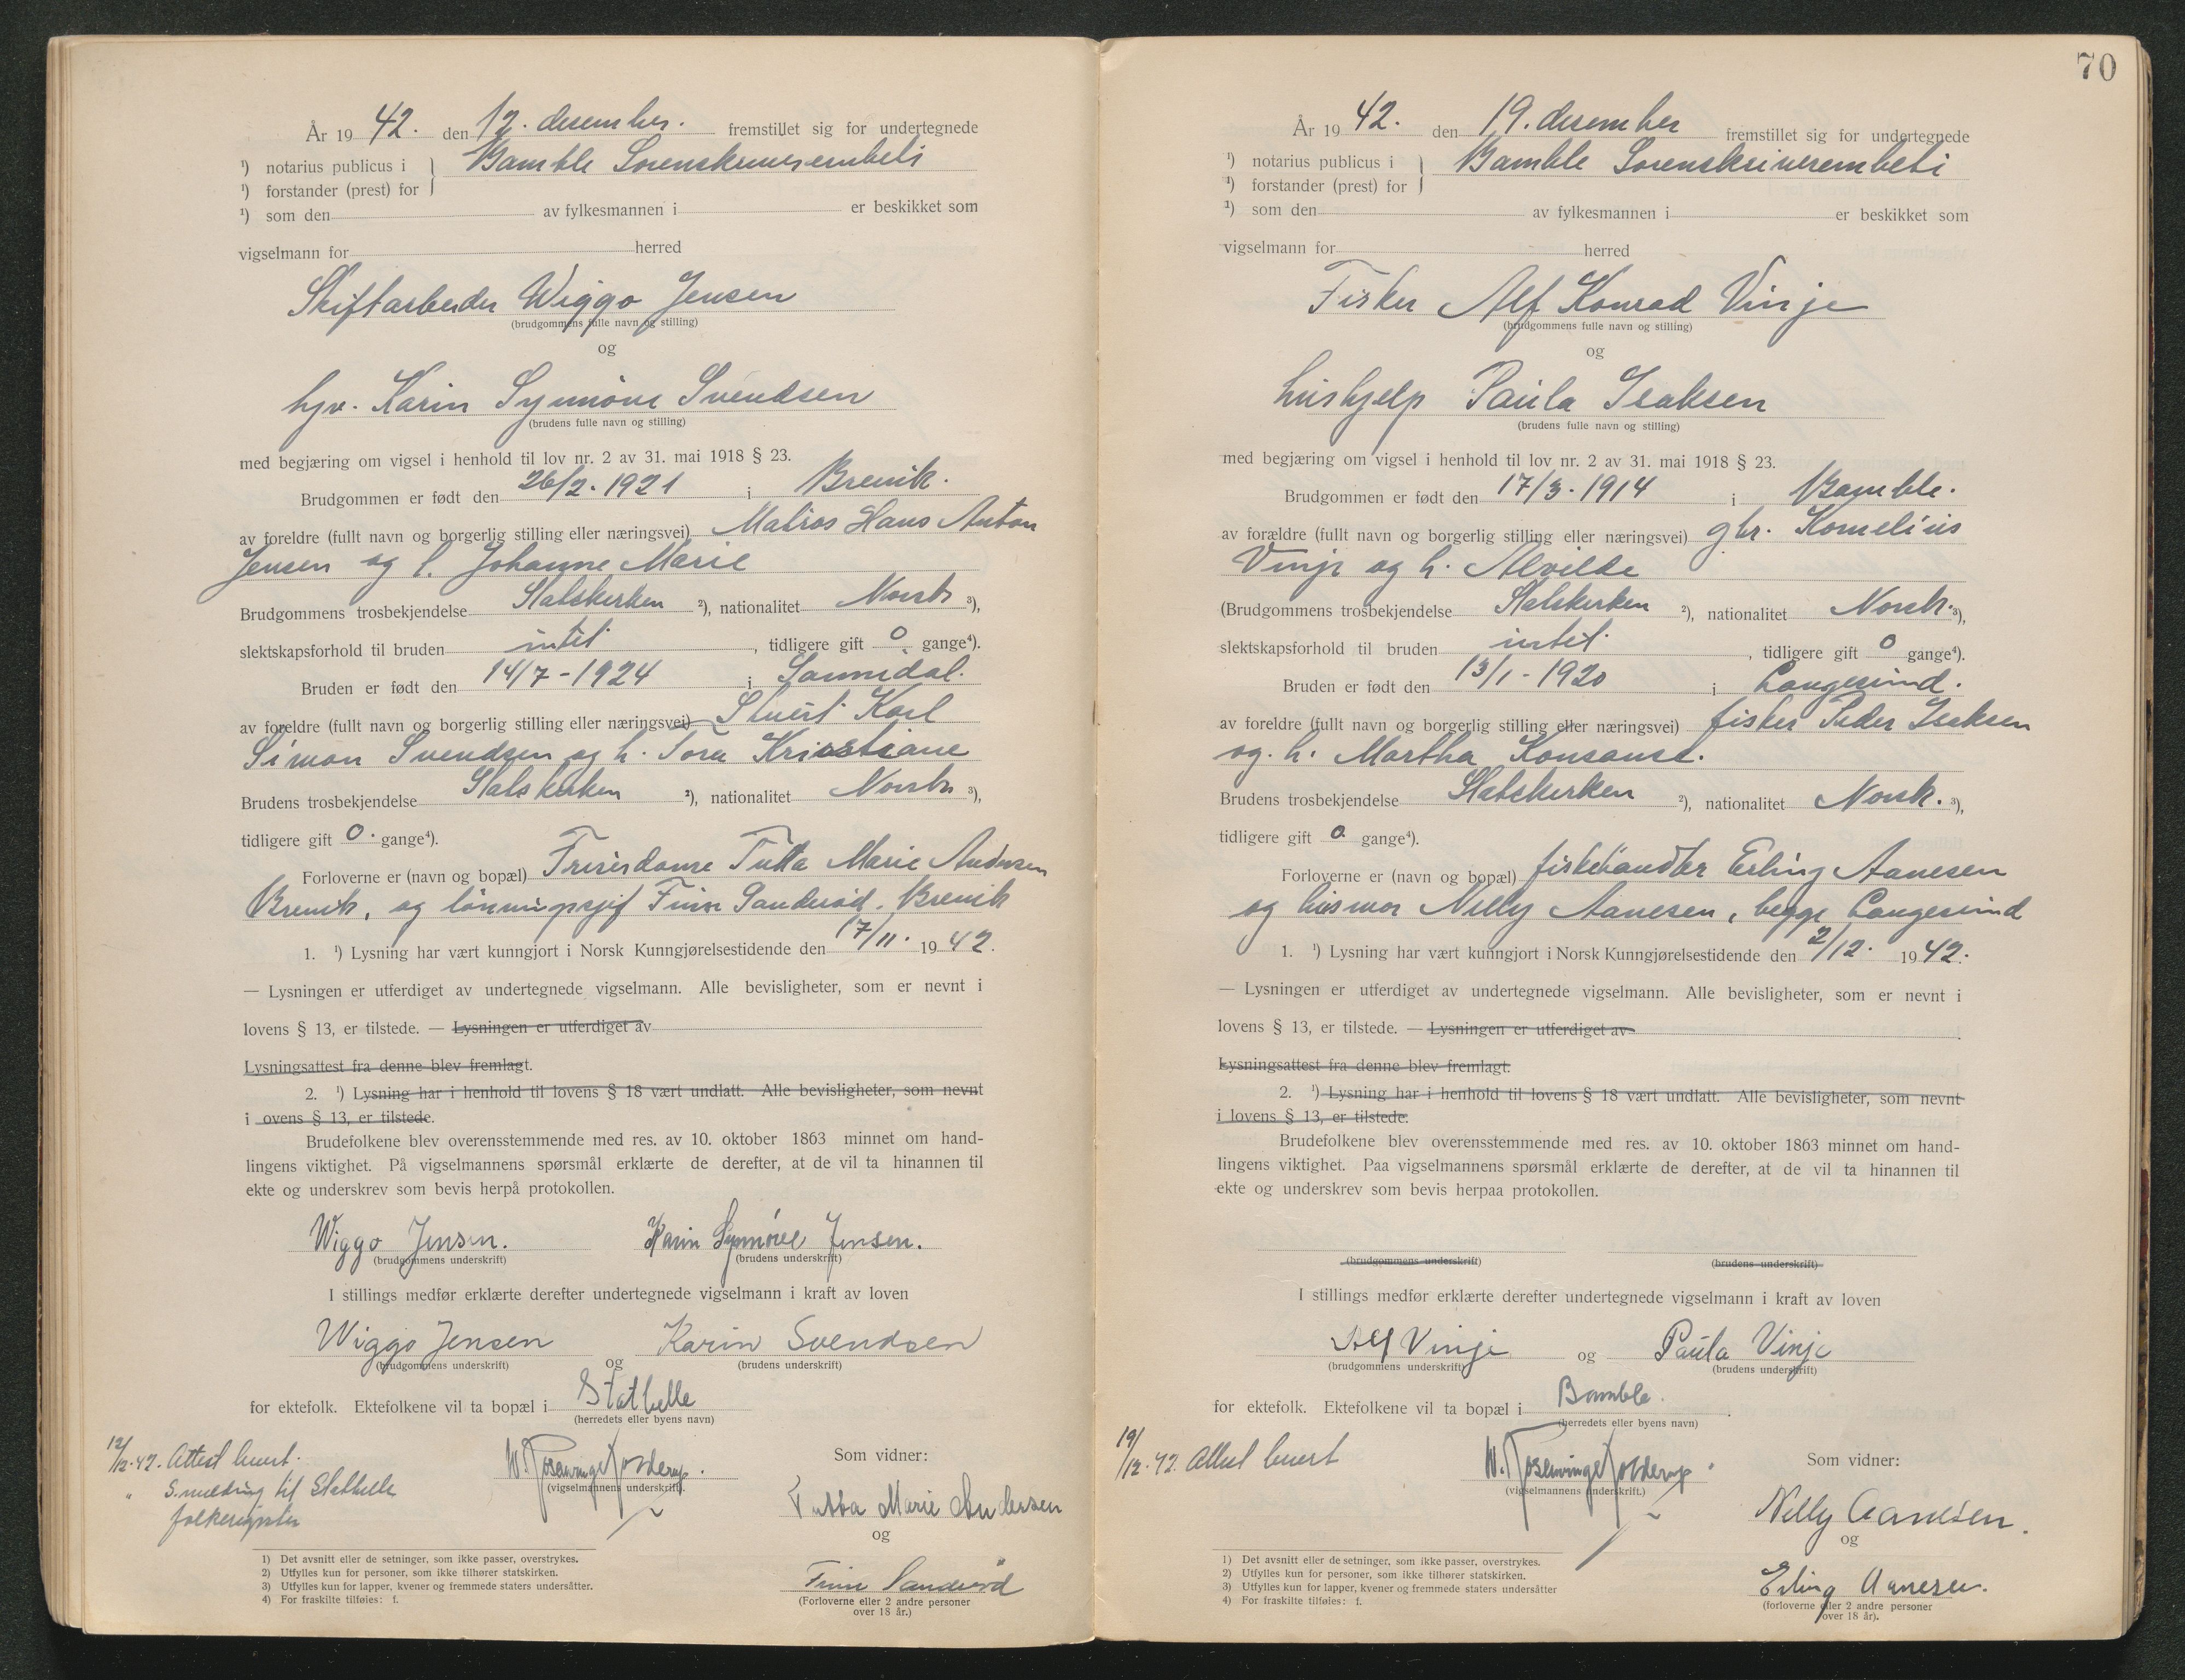 År 19 42. den 12. desember. fremstillet sig for undertegnede
¹) notarius publicus i } Bamble Sorenskriverembeti
¹) forstander (prest) for
¹) som den av fylkesmannen i er beskikket som
vigselmann for herred
Skiftarbeider Wiggo Jensen
(brudgommens fulle navn og stilling)
og
hjv. Karin Synnöve Svendsen
(brudens fulle navn og stilling)
med begjæring om vigsel i henhold til lov nr. 2 av 31. mai 1918 § 23.
Brudgommen er født den 26/2-1921 i Brevik.
av foreldre (fullt navn og borgerlig stilling eller næringsvei) Matros Hans Anton
Jensen og h. Johanne Marie
Brudgommens trosbekjendelse Statskirken ²), nationalitet Norsk ³),
slektskapsforhold til bruden intet , tidligere gift 0 gange⁴).
Bruden er født den 14/7-1924 i Sannidal.
av foreldre (fullt navn og borgerlig stilling eller næringsvei) Stuert Karl
Simon Svendsen og h. Tora Kristiane
Brudens trosbekjendelse Statskirken ²), nationalitet Norsk ³),
tidligere gift 0. gange⁴).
Forloverne er (navn og bopæl) Frisördame Tutta Marie Andersen
Brevik, og Finn Sanderöd. Brevik
1. ¹) Lysning har vært kunngjort i Norsk Kunngjørelsestidende den 17/11. 19 42.
— Lysningen er utferdiget av undertegnede vigselmann. Alle bevisligheter, som er nevnt i
lovens § 13, er tilstede. — Lysningen er utferdiget av
Lysningsattest fra denne blev fremlagt.
2. ¹) Lysning har i henhold til lovens § 18 vært undlatt. Alle bevisligheter, som nevnt
i ovens § 13, er tilstede.
Brudefolkene blev overensstemmende med res. av 10. oktober 1863 minnet om hand-
lingens viktighet. På vigselmannens spørsmål erklærte de derefter, at de vil ta hinannen til
ekte og underskrev som bevis herpå protokollen.
Wiggo Jensen. Karin Synnöve Jensen.
(brudgommens underskrift) (brudens underskrift)
I stillings medfør erklærte derefter undertegnede vigselmann i kraft av loven
Wiggo Jensen og Karin Svendsen
(brudgommens underskrift) (brudens underskrift)
for ektefolk. Ektefolkene vil ta bopæl i Stathelle
(herredets eller byens navn)
12/12.42. Attest levert.
" S.melding til Stathelle
folkeregister
W. Rosenvinge Kolderup.
(vigselmannens underskrift).
Som vidner:
Tutta Marie Andersen
og
Finn Sanderöd
(Forloverne eller 2 andre personer
over 18 år.)
1) Det avsnitt eller de setninger, som ikke passer, overstrykes.
2) Utfylles kun for personer, som ikke tilhører statskirken.
3) Utfylles kun for lapper, kvener og fremmede staters undersåtter.
4) For fraskilte tilføies: f.
70
År 19 42. den 19. desember fremstillet sig for undertegnede
¹) notarius publicus i } Bamble Sorenskriverembeti
¹) forstander (prest) for
¹) som den av fylkesmannen i er beskikket som
vigselmann for herred
Fisker Alf Konrad Vinje
(brudgommens fulle navn og stilling)
og
hushjelp Paula Isaksen
(brudens fulle navn og stilling)
med begjæring om vigsel i henhold til lov nr. 2 av 31. mai 1918 § 23.
Brudgommen er født den 17/3-1914 i Bamble.
av forældre (fullt navn og borgerlig stilling eller næringsvei) gbr. Kornelius
Vinje og h. Alvilde
(Brudgommens trosbekjendelse Statskirken ²), nationalitet Norsk. ³),
slektskapsforhold til bruden intet , tidligere gift 0 gange⁴).
Bruden er født den 13/1-1920 i Langesund.
av foreldre (fullt navn og borgerlig stilling eller næringsvei) fisker Peder Isaksen
og. h. Martha Konstanse.
Brudens trosbekjendelse Statskirken ²), nationalitet Norsk. ³),
tidligere gift 0 gange⁴).
Forloverne er (navn og bopæl) fiskehandler Erling Aanesen
og husmor Nelly Aanesen, begge Langesund
1. ¹) Lysning har vært kunngjort i Norsk Kunngjørelsestidende den 2/12. 19 42.
— Lysningen er utferdiget av undertegnede vigselmann. Alle bevisligheter, som er nevnt i
lovens § 13, er tilstede. — Lysningen er utferdiget av
Lysningsattest fra denne blev fremlagt.
2. ¹) Lysning har i henhold til lovens § 18 vært undlatt. Alle bevisligheter, som nevnt
i lovens § 13, er tilstede.
Brudefolkene blev overensstemmende med res. av 10. oktober 1863 minnet om hand-
lingens viktighet. Paa vigselmannens spørsmål erklærte de derefter, at de vil ta hinannen til
ekte og underskrev som bevis herpaa protokollen.
(brudgommens underskrift) (brudens underskrift)
I stillings medfør erklærte derefter undertegnede vigselmann i kraft av loven
Alf Vinje og Paula Vinje
(brudgommens underskrift) (brudens underskrift)
for ektefolk. Ektefolkene vil ta bopæl i Bamble.
(herredets eller byens navn)
19/12.42. Attest levert
W. Rosenvinge Kolderup.
(vigselmannens underskrift.)
Som vidner:
Nelly Aanesen.
og
Erling Aanesen.
(forloverne eller 2 andre personer
over 18 år).
1) Det avsnitt eller de setninger, som ikke passer, overstrykes.
2) Utfylles kun for personer, som ikke tilhører statskirken.
3) Utfylles kun for lapper, kvener og fremmede staters undersåtter
4) For fraskilte tilføies: f.